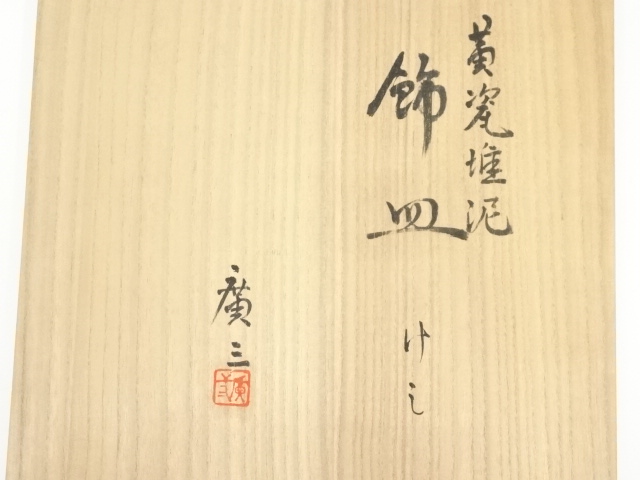 黄瓷堆泥
飾皿
廣三